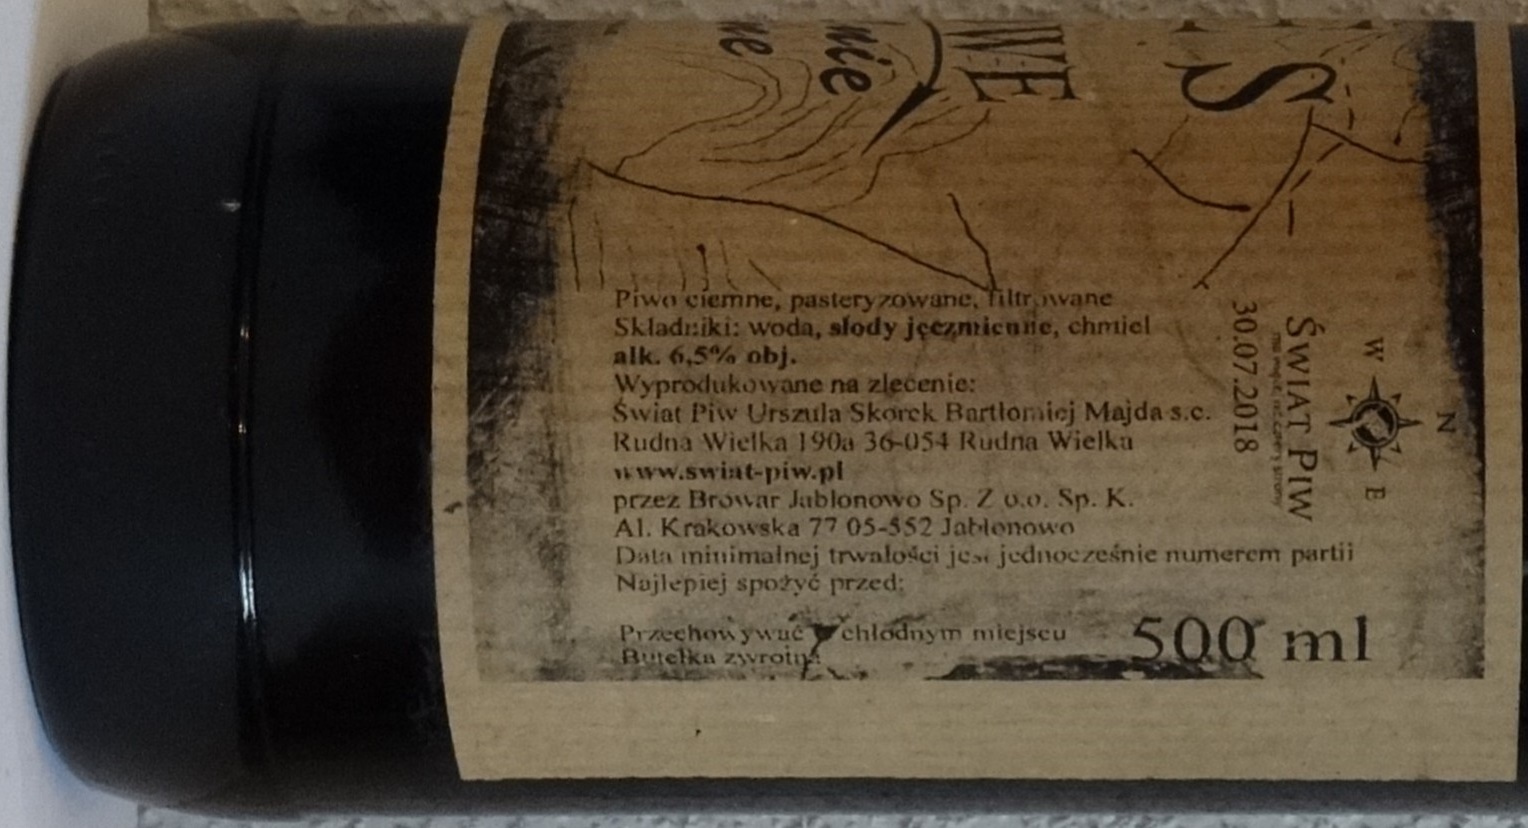 nie
ne
WE
S
Piwo ciemne, pasteryzowane, filtrowane
Składniki: woda, słody jęczmienne, chmiel
alk. 6,5% obj.
Wyprodukowane na zlecenie:
Świat Piw Urszula Skorek Bartłomiej Majda s.c.
Rudna Wielka 190a 36-054 Rudna Wielka
www.swiat-piw.pl
przez Browar Jabłonowo Sp. Z o.o. Sp. K.
Al. Krakowska 77 05-552 Jabłonowo
Data minimalnej trwałości jest jednocześnie numerem partii
Najlepiej spożyć przed:
Przechowywać w chłodnym miejscu
Butelka zwrotna
500 ml
30.07.2018
ŚWIAT PIW
W
N
E